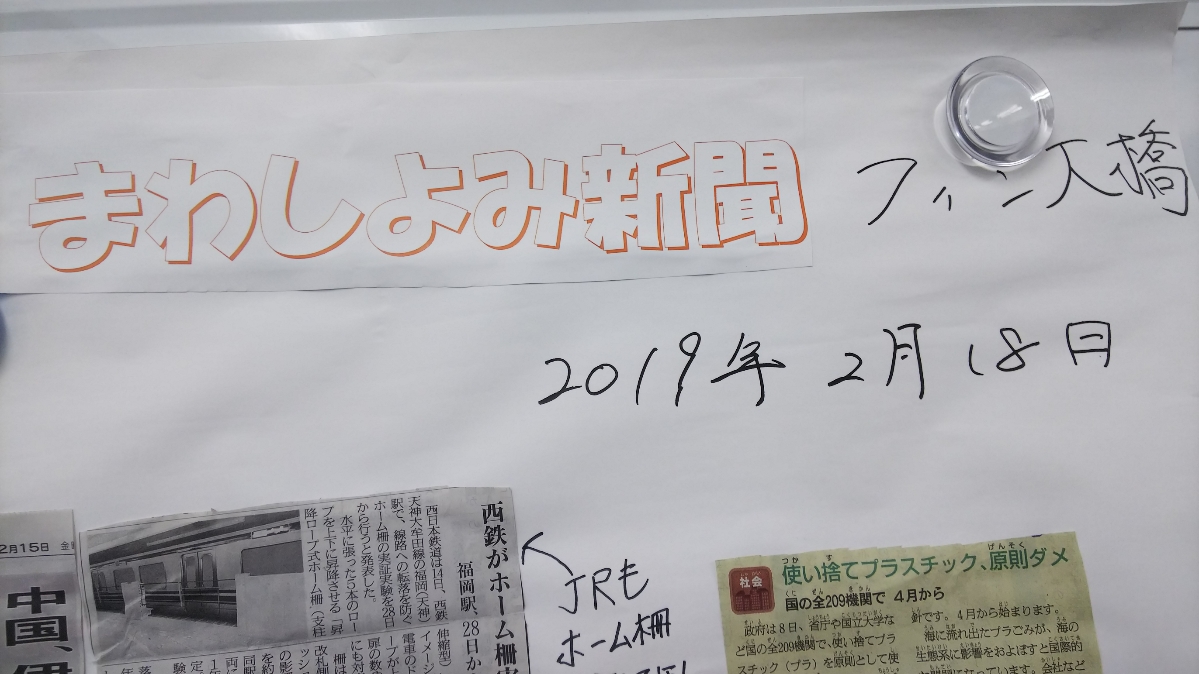 まわしよみ新聞
フィン大橋
2019年 2月 18日
2月15日 金
中国、伊
西鉄がホーム柵実
福岡駅、28日か
西日本鉄道は14日、西鉄
天神大牟田線の福岡(天神)
駅で、線路への転落を防ぐ
ホーム柵の実証実験を28日
から行うと発表した。
水平に張った5本のロー
プを上下に昇降させる「昇
降ロープ式ホーム柵(支柱
伸縮型)
イメージ
ープが上
電車のド
扉の数
にも対
柵は
改札
ッシ
の影
を約
JRも
ホーム柵
社会
使い捨てプラスチック、原則ダメ
国の全209機関で 4月から
政府は8日、省庁や国立大学な
ど国の全209機関で、使い捨てプラ
スチック(プラ)を原則として使
針です。4月から始まります。
海に流れ出たプラごみが、海の
生態系に影響をおよぼすと国際的
な問題になっています。会社など